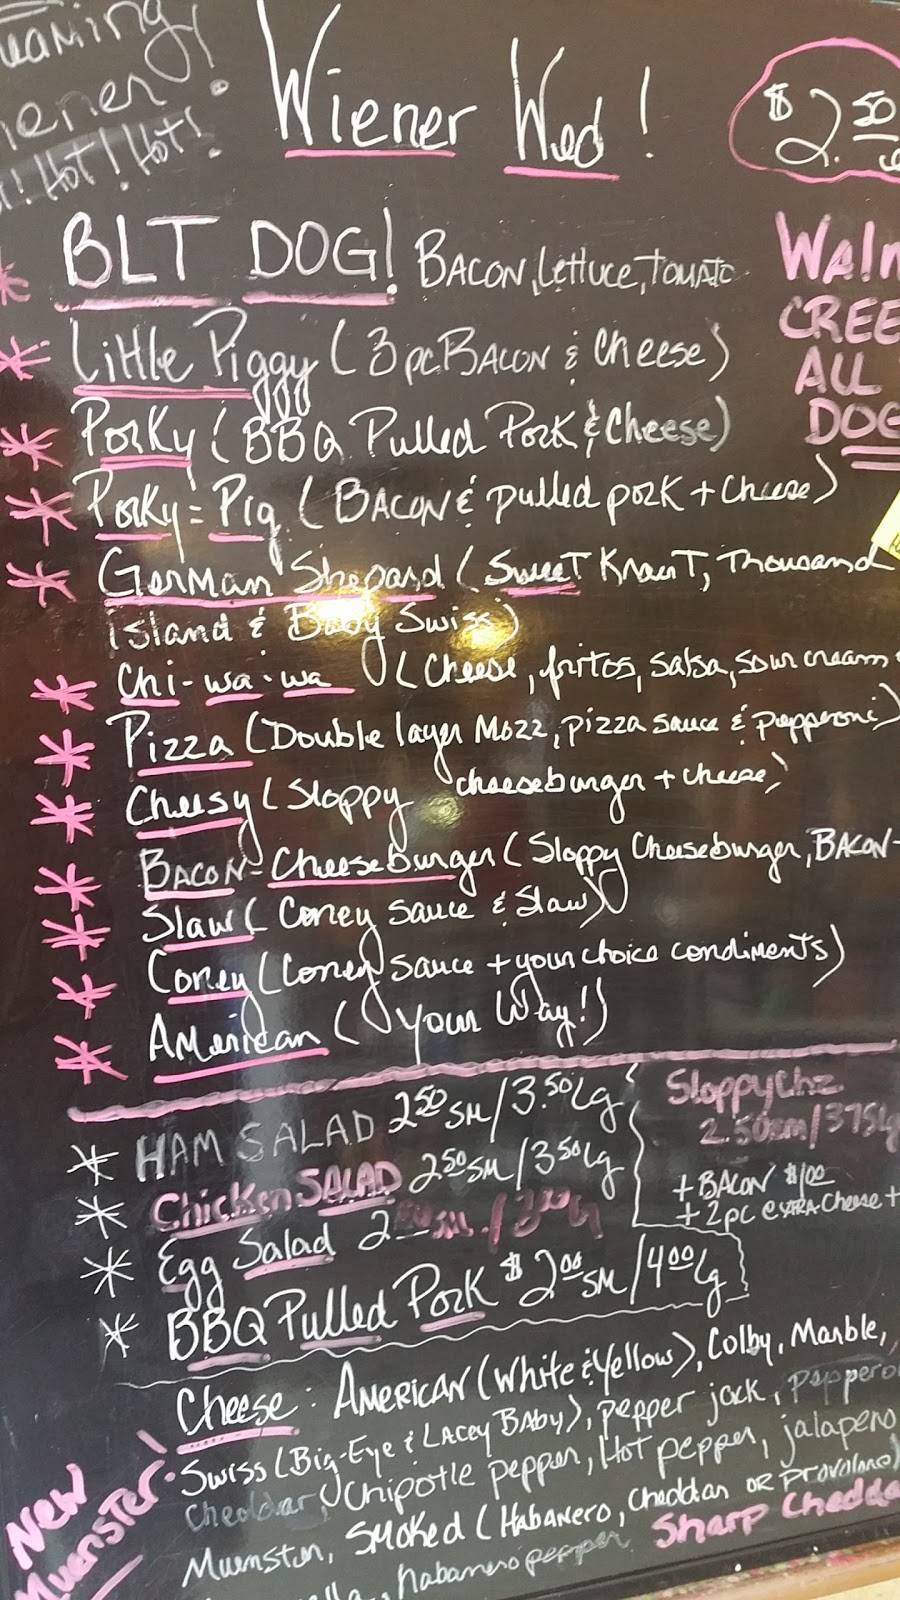 Wiener Wed!
$2.50
Hot! Hot!
BLT DOG! BACON, Lettuce, TOMATO
CREE
ALL
DOG
Little Piggy (3pc BACON & Cheese)
Porky (BBQ Pulled Pork & Cheese)
Porky=Pig (BACON & pulled pork + Cheese)
German Shepard (Sweet Kraut, Thousand
Island & Baby Swiss)
Chi-wa-wa (Cheese, fritos, salsa, sour cream
Pizza (Double layer Mozz, pizza sauce & pepperoni)
Cheesy (Sloppy cheeseburger + cheese)
BACON-Cheeseburger (Sloppy Cheeseburger, BACON-
Slaw (Coney Sauce & Slaw)
Coney (Coney Sauce + your choice condiments)
AMerican (Your Way!)
HAM SALAD 2.50 SM/3.50 Lg
Chicken SALAD 2.50 SM/3.50 Lg
Egg Salad
BBQ Pulled Pork $2.00 SM/4.00 Lg
Sloppy Chz.
2.50sm/375Lg
+ BACON $1.00
+ 2pc extra Cheese +
Cheese: AMERICAN (White & Yellow), Colby, Marble,
Swiss (Big-Eye & LACEY BABY), pepper jack,
Cheddar, Chipotle pepper, Hot pepper, jalapeno
Muenster, SMOKED (HABANERO, Cheddar OR Provolone)
habanero pepper, Sharp Chedda
New
Muenster